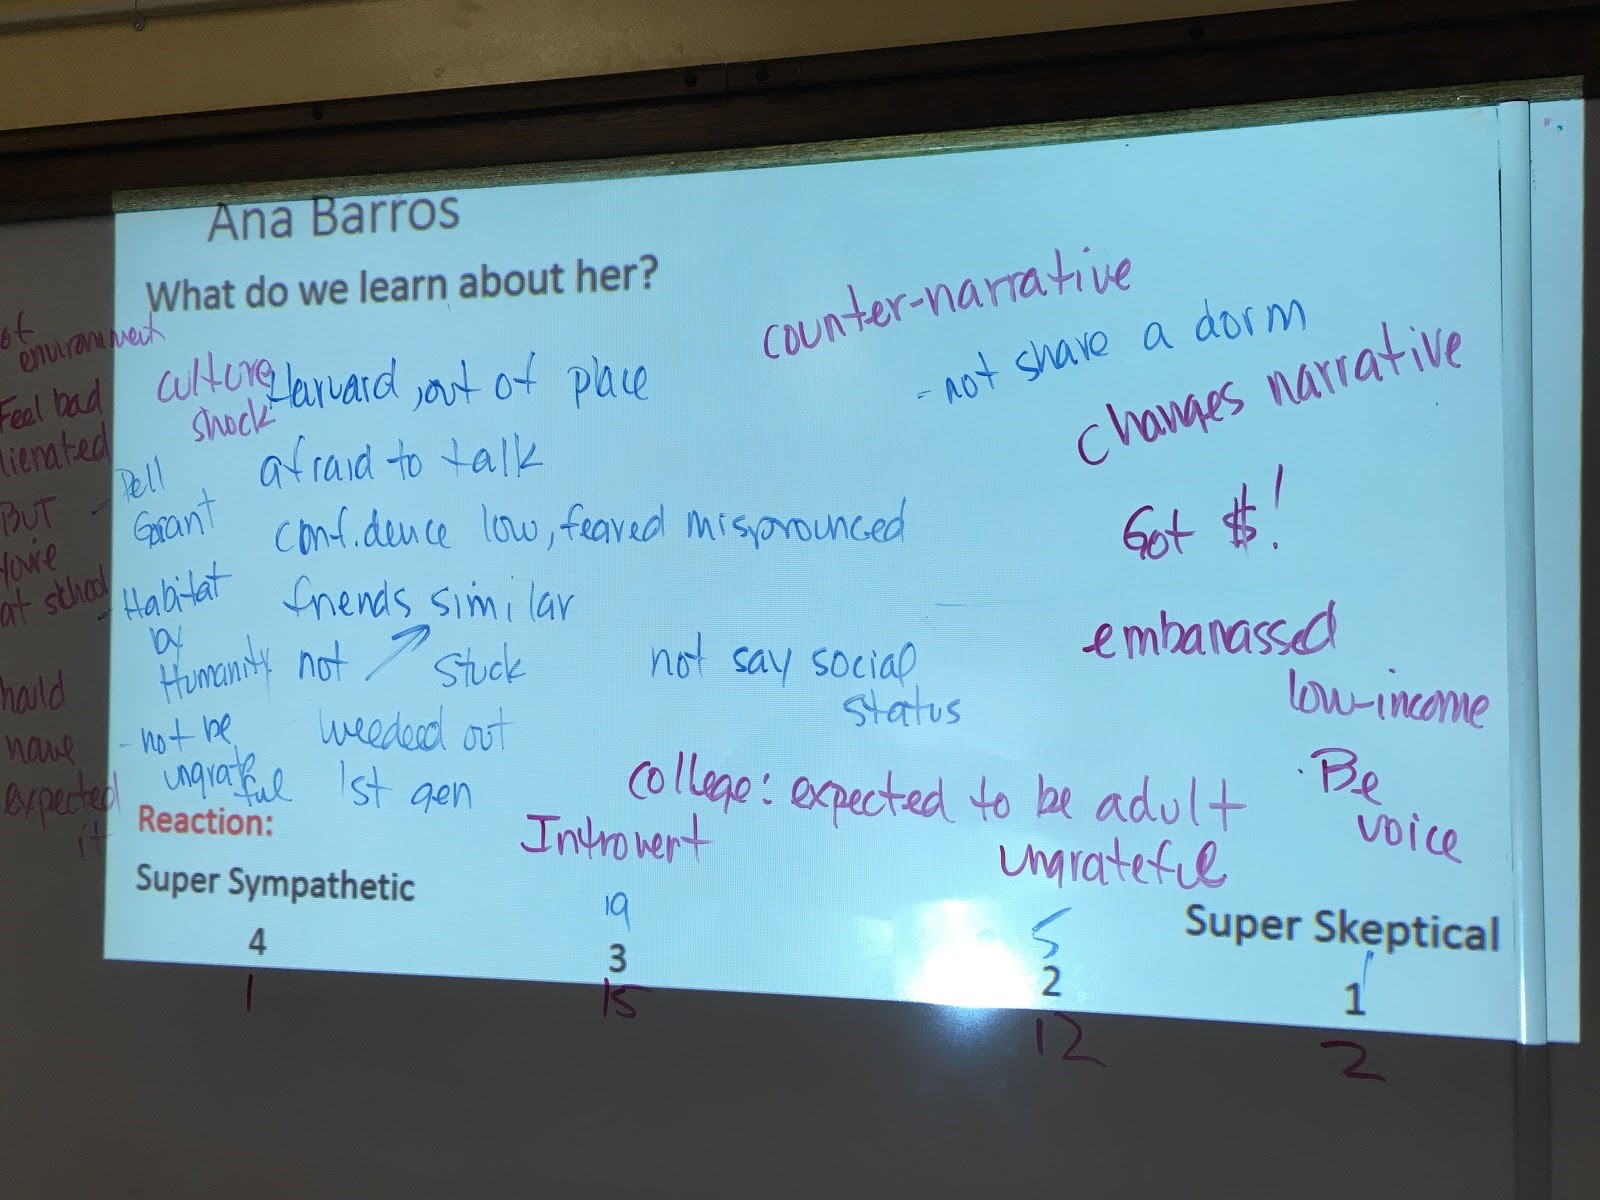 Ana Barros
What do we learn about her?
counter-narrative
- not share a dorm
changes narrative
of
environment
culture
shock
Harvard, out of place
Feel bad
lienated
afraid to talk
- Pell
Grant
BUT
You're
at school
confidence low, feared misprounced
Got $!
- Habitat
by
Humanity
friends similar
not
stuck
not say social
status
embarrassed
low-income
hould
have
expected
it
- not be
ungrate
ful
weeded out
1st gen
college: expected to be adult
Introvert
ungrateful
· Be
voice
Reaction:
Super Sympathetic
Super Skeptical
19
5
1
4
3
2
1
1
15
12
2